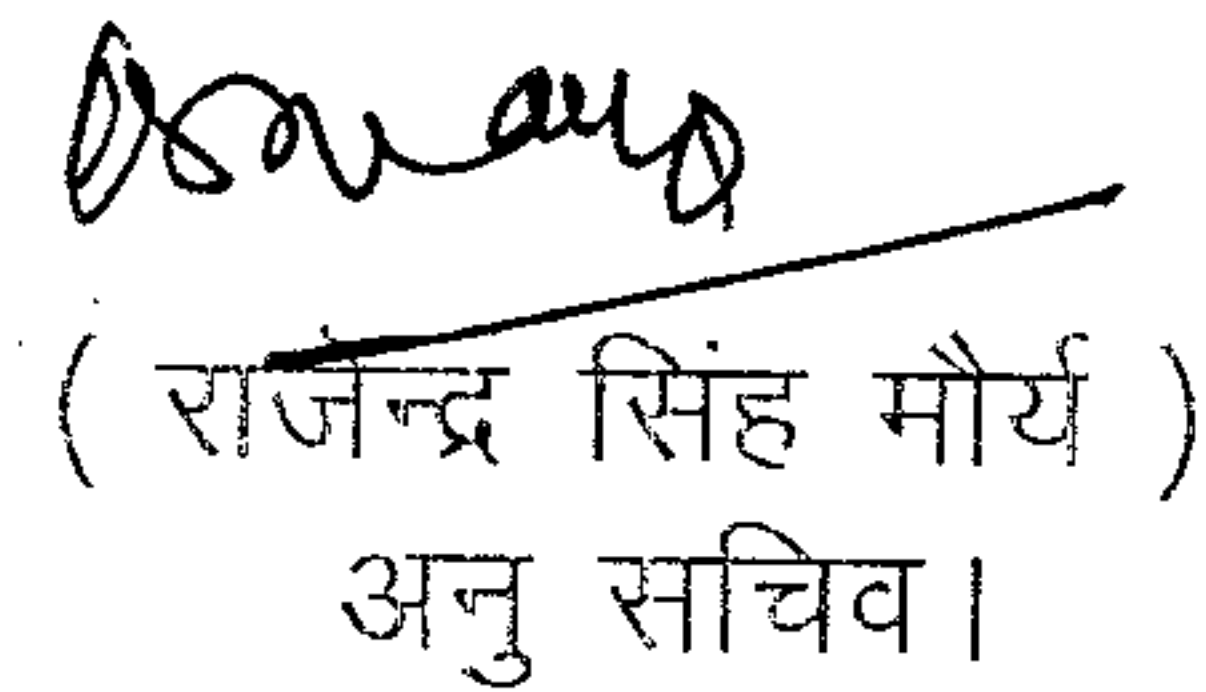 ( राजेन्द्र सिंह मौर्य )
अनु सचिव ।